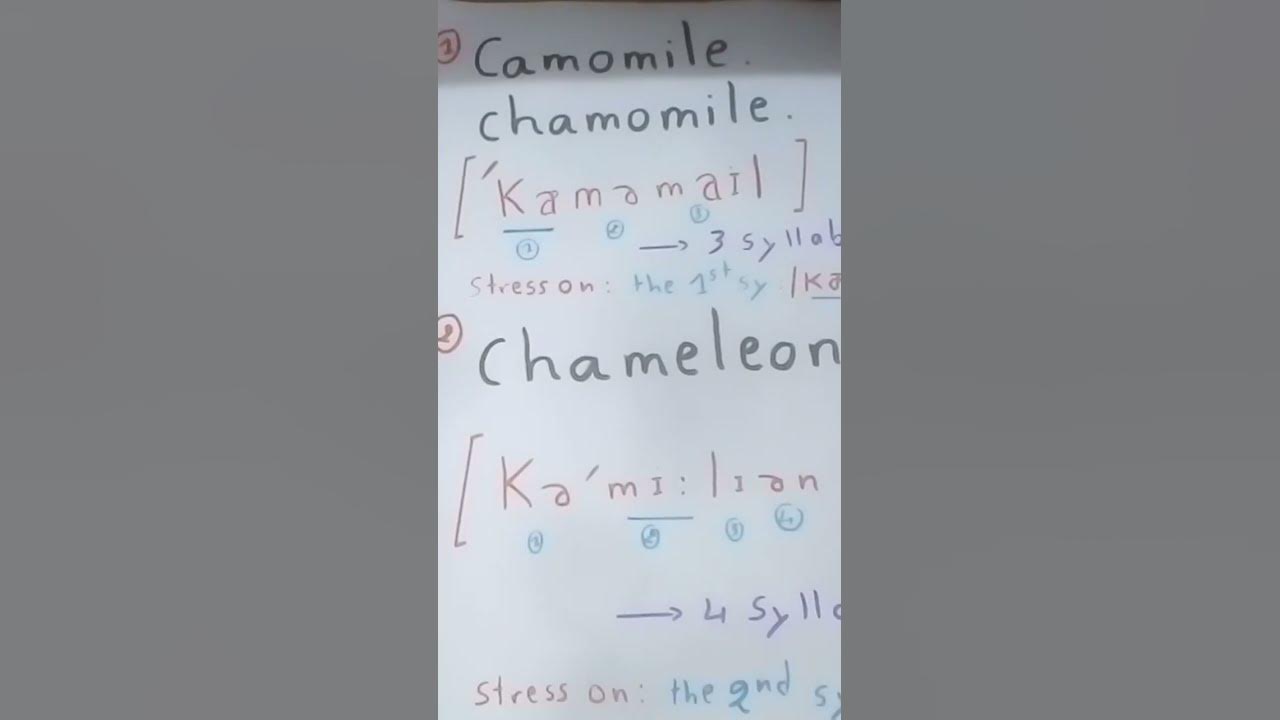 ① Camomile.
chamomile.
[ˈKæməmaɪl]
① ② ③
→ 3 syllab
Stress on: the 1st sy /Kæ
② Chameleon
[Kəˈmɪ:lɪən
① ② ③ ④
→ 4 Sylla
Stress on: the 2nd sy